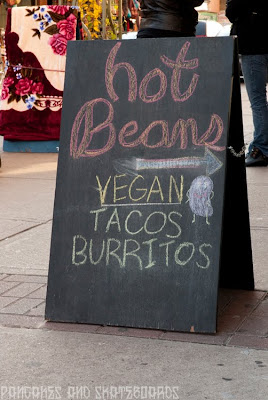 hot
Beans
VEGAN
TACOS
BURRITOS
PANCAKES AND SKATEBOARDS